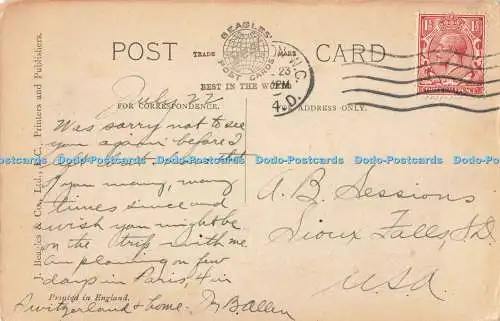 POST CARD
BEAGLES'
TRADE MARK
POST CARDS
BEST IN THE WORLD
W.C.
23
PM
4.D.
FOR CORRESPONDENCE.
FOR ADDRESS ONLY.
J. Beagles & Co., Ltd., E.C. Printers and Publishers.
July 22
Was sorry not to see
you again before I
but
of you many, many
times since and
wish you might be
on the trip with me.
Am planning on few
days in Paris, 4 in
Switzerland & home. M B Allen
Printed in England.
A. B. Sessions
Sioux Falls, S.D.
U.S.A.
Dodo-Postcards Dodo-Postcards Dodo-Postcards Dodo-Postcards Dodo-Postcards